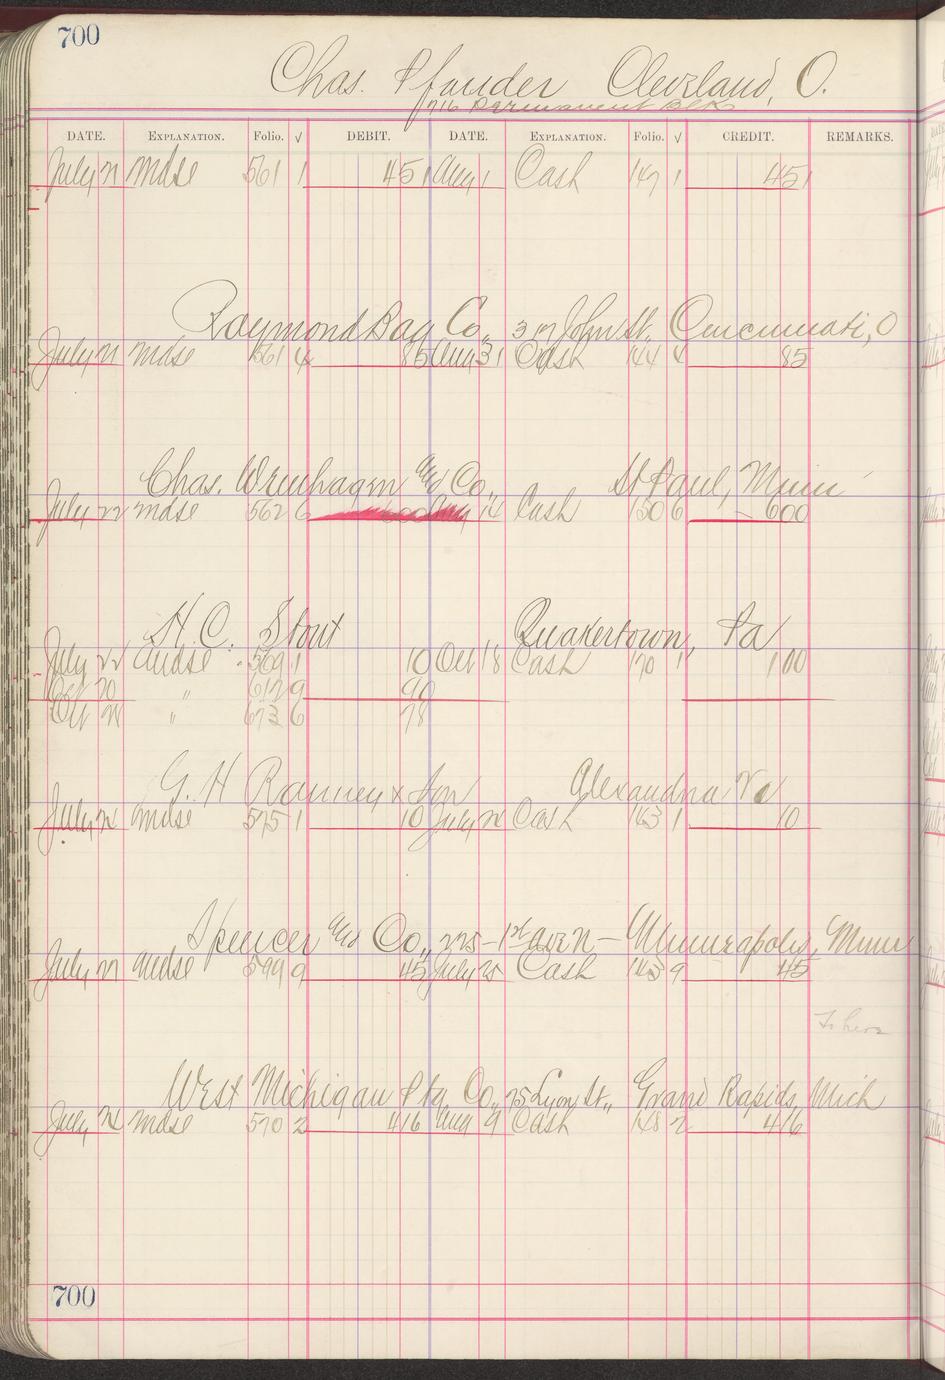 700
Chas. Pfander Cleveland, O.
716 Permanent Blk
DATE. EXPLANATION. Folio. √ DEBIT. DATE. EXPLANATION. Folio. √ CREDIT. REMARKS.
July 21 Mdse 561 1 451 Aug 1 Cash 147 1 451
Raymond Bag Co., John St., Cincinnati, O
July 21 Mdse 561 4 85 Aug 31 Cash 144 4 85
Chas. Co., St Paul, Minn
July 22 Mdse 562 6 600 Aug 14 Cash 150 6 600
H. C. Stout Quakertown, Pa
July 22 Mdse 569 1 10 Oct 18 Cash 170 1 1 00
Oct 20 " 612 9 90
Oct " 673 6 78
G. H Ranney & Son Alexandria Va
July 24 Mdse 575 1 10 July 26 Cash 163 1 10
Spencer Co., 225 - 1st Ave N - Minneapolis, Minn
July 27 Mdse 599 9 45 July 25 Cash 143 9 45
To here
West Michigan Ptg. Co., 25 Lyon St., Grand Rapids, Mich
July 24 Mdse 570 2 416 Aug 9 Cash 148 2 416
700